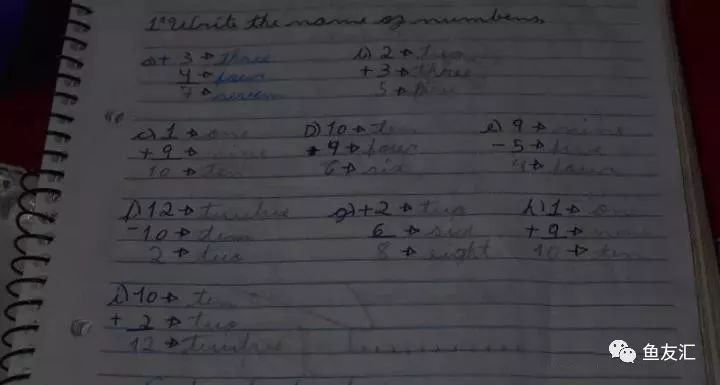 1° Write the name of numbers.
a) + 3 → three b) 2 → two
4 → four + 3 → three
7 → seven 5 → five
c) 1 → one D) 10 → ten e) 9 → nine
+ 9 → nine 4 → four - 5 → five
10 → ten 6 → six 4 → four
f) 12 → g) + 2 → two h) 1 → one
- 10 → ten 6 → six + 9 → nine
2 → two 8 → eight 10 → ten
i) 10 → ten
+ 2 → two
12 →
鱼友汇